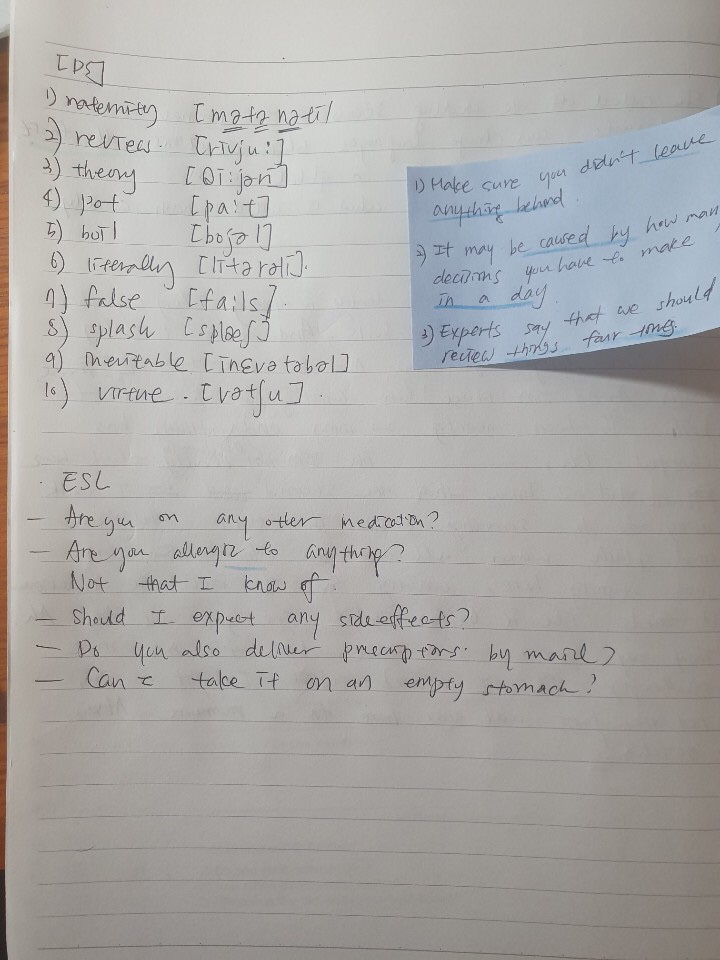 [PE]
1) maternity [mətə nəti/
2) review. [rivju:]
3) theory [θi:jəri]
4) pot [pa:t]
5) boil [bojəl]
6) literally [litərəli].
7) false [fa:ls].
8) splash [splæʃ]
9) inevitable [inɛvətəbəl]
10) virtue. [vətʃu].
1) Make sure you didn't leave
anything behind.
2) It may be caused by how man
decisions you have to make
in a day.
3) Experts say that we should
review things four times.
· ESL
– Are you on any other medication?
– Are you allergic to anything?
Not that I know of.
– Should I expect any side effects?
– Do you also deliver by mail?
– Can I take it on an empty stomach?